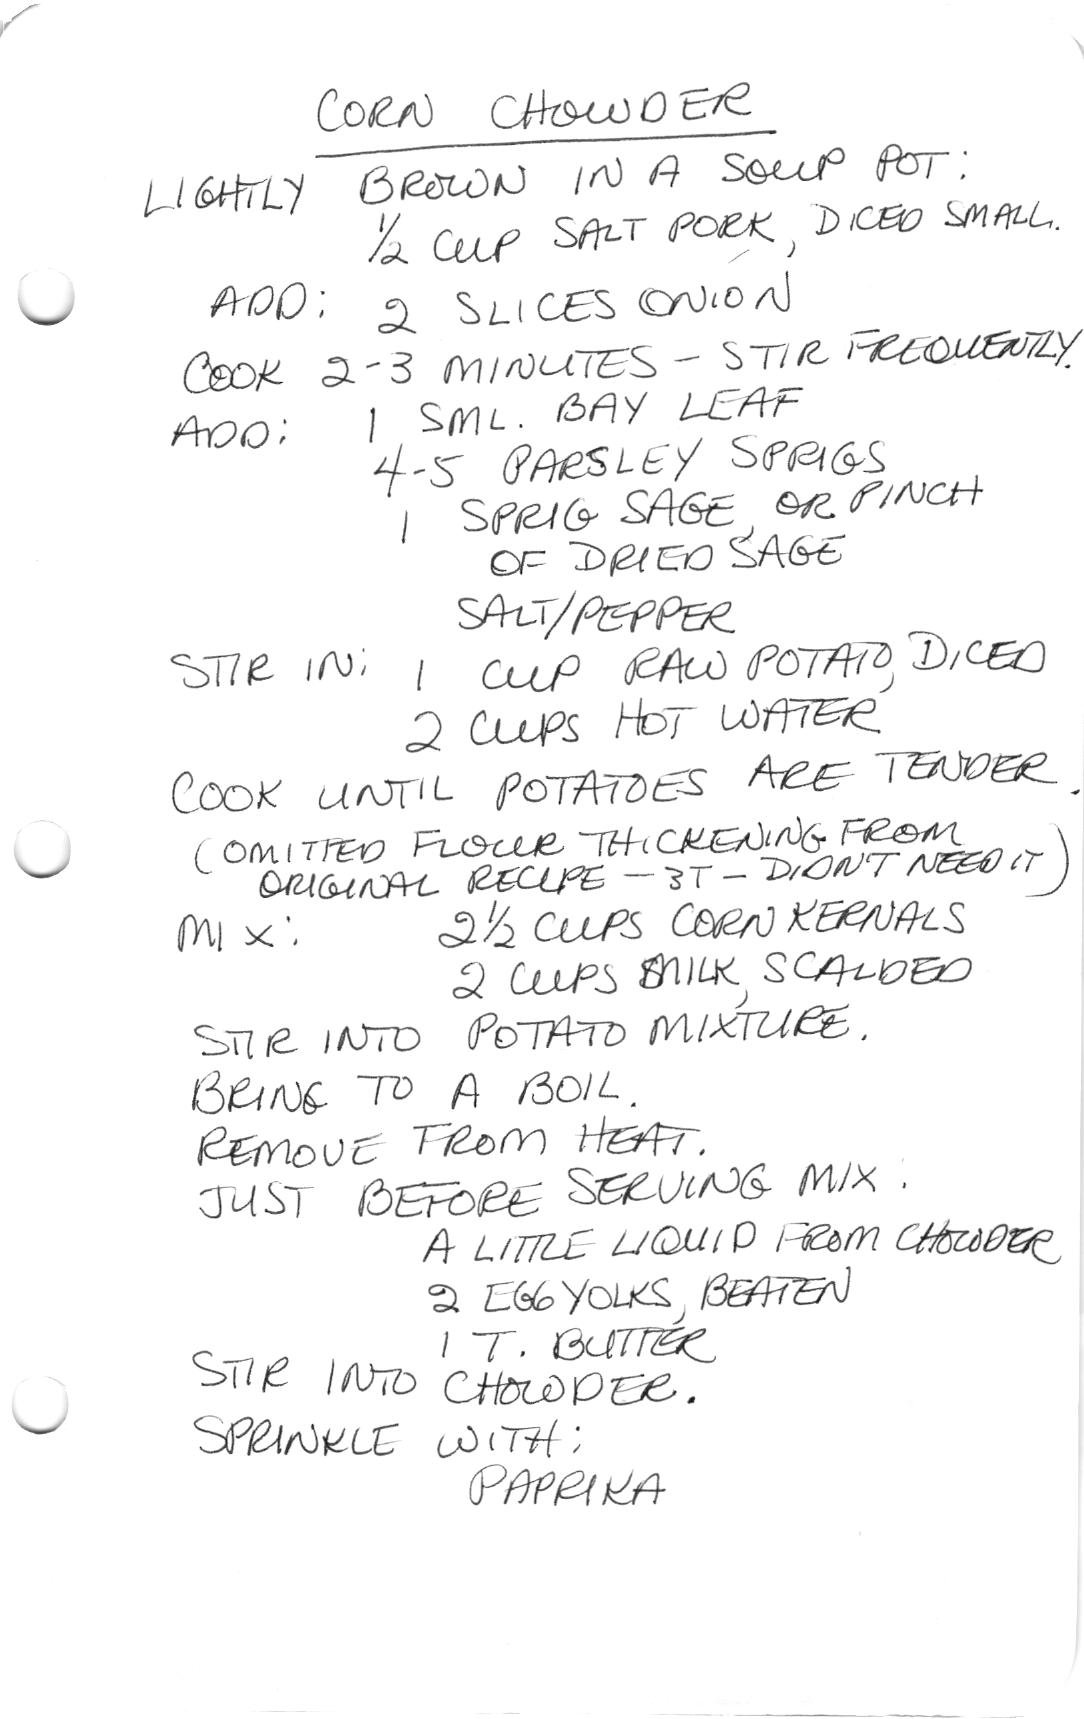 CORN CHOWDER
LIGHTLY BROWN IN A SOUP POT:
½ CUP SALT PORK, DICED SMALL.
ADD: 2 SLICES ONION
COOK 2-3 MINUTES - STIR FREQUENTLY.
ADD: 1 SML. BAY LEAF
4-5 PARSLEY SPRIGS
1 SPRIG SAGE, OR PINCH
OF DRIED SAGE
SALT/PEPPER
STIR IN: 1 CUP RAW POTATO, DICED
2 CUPS HOT WATER
COOK UNTIL POTATOES ARE TENDER.
(OMITTED FLOUR THICKENING FROM
ORIGINAL RECIPE - 3T - DIDN'T NEED IT)
MIX: 2½ CUPS CORN KERNALS
2 CUPS MILK, SCALDED
STIR INTO POTATO MIXTURE.
BRING TO A BOIL.
REMOVE FROM HEAT.
JUST BEFORE SERVING MIX:
A LITTLE LIQUID FROM CHOWDER
2 EGG YOLKS, BEATEN
1 T. BUTTER
STIR INTO CHOWDER.
SPRINKLE WITH:
PAPRIKA